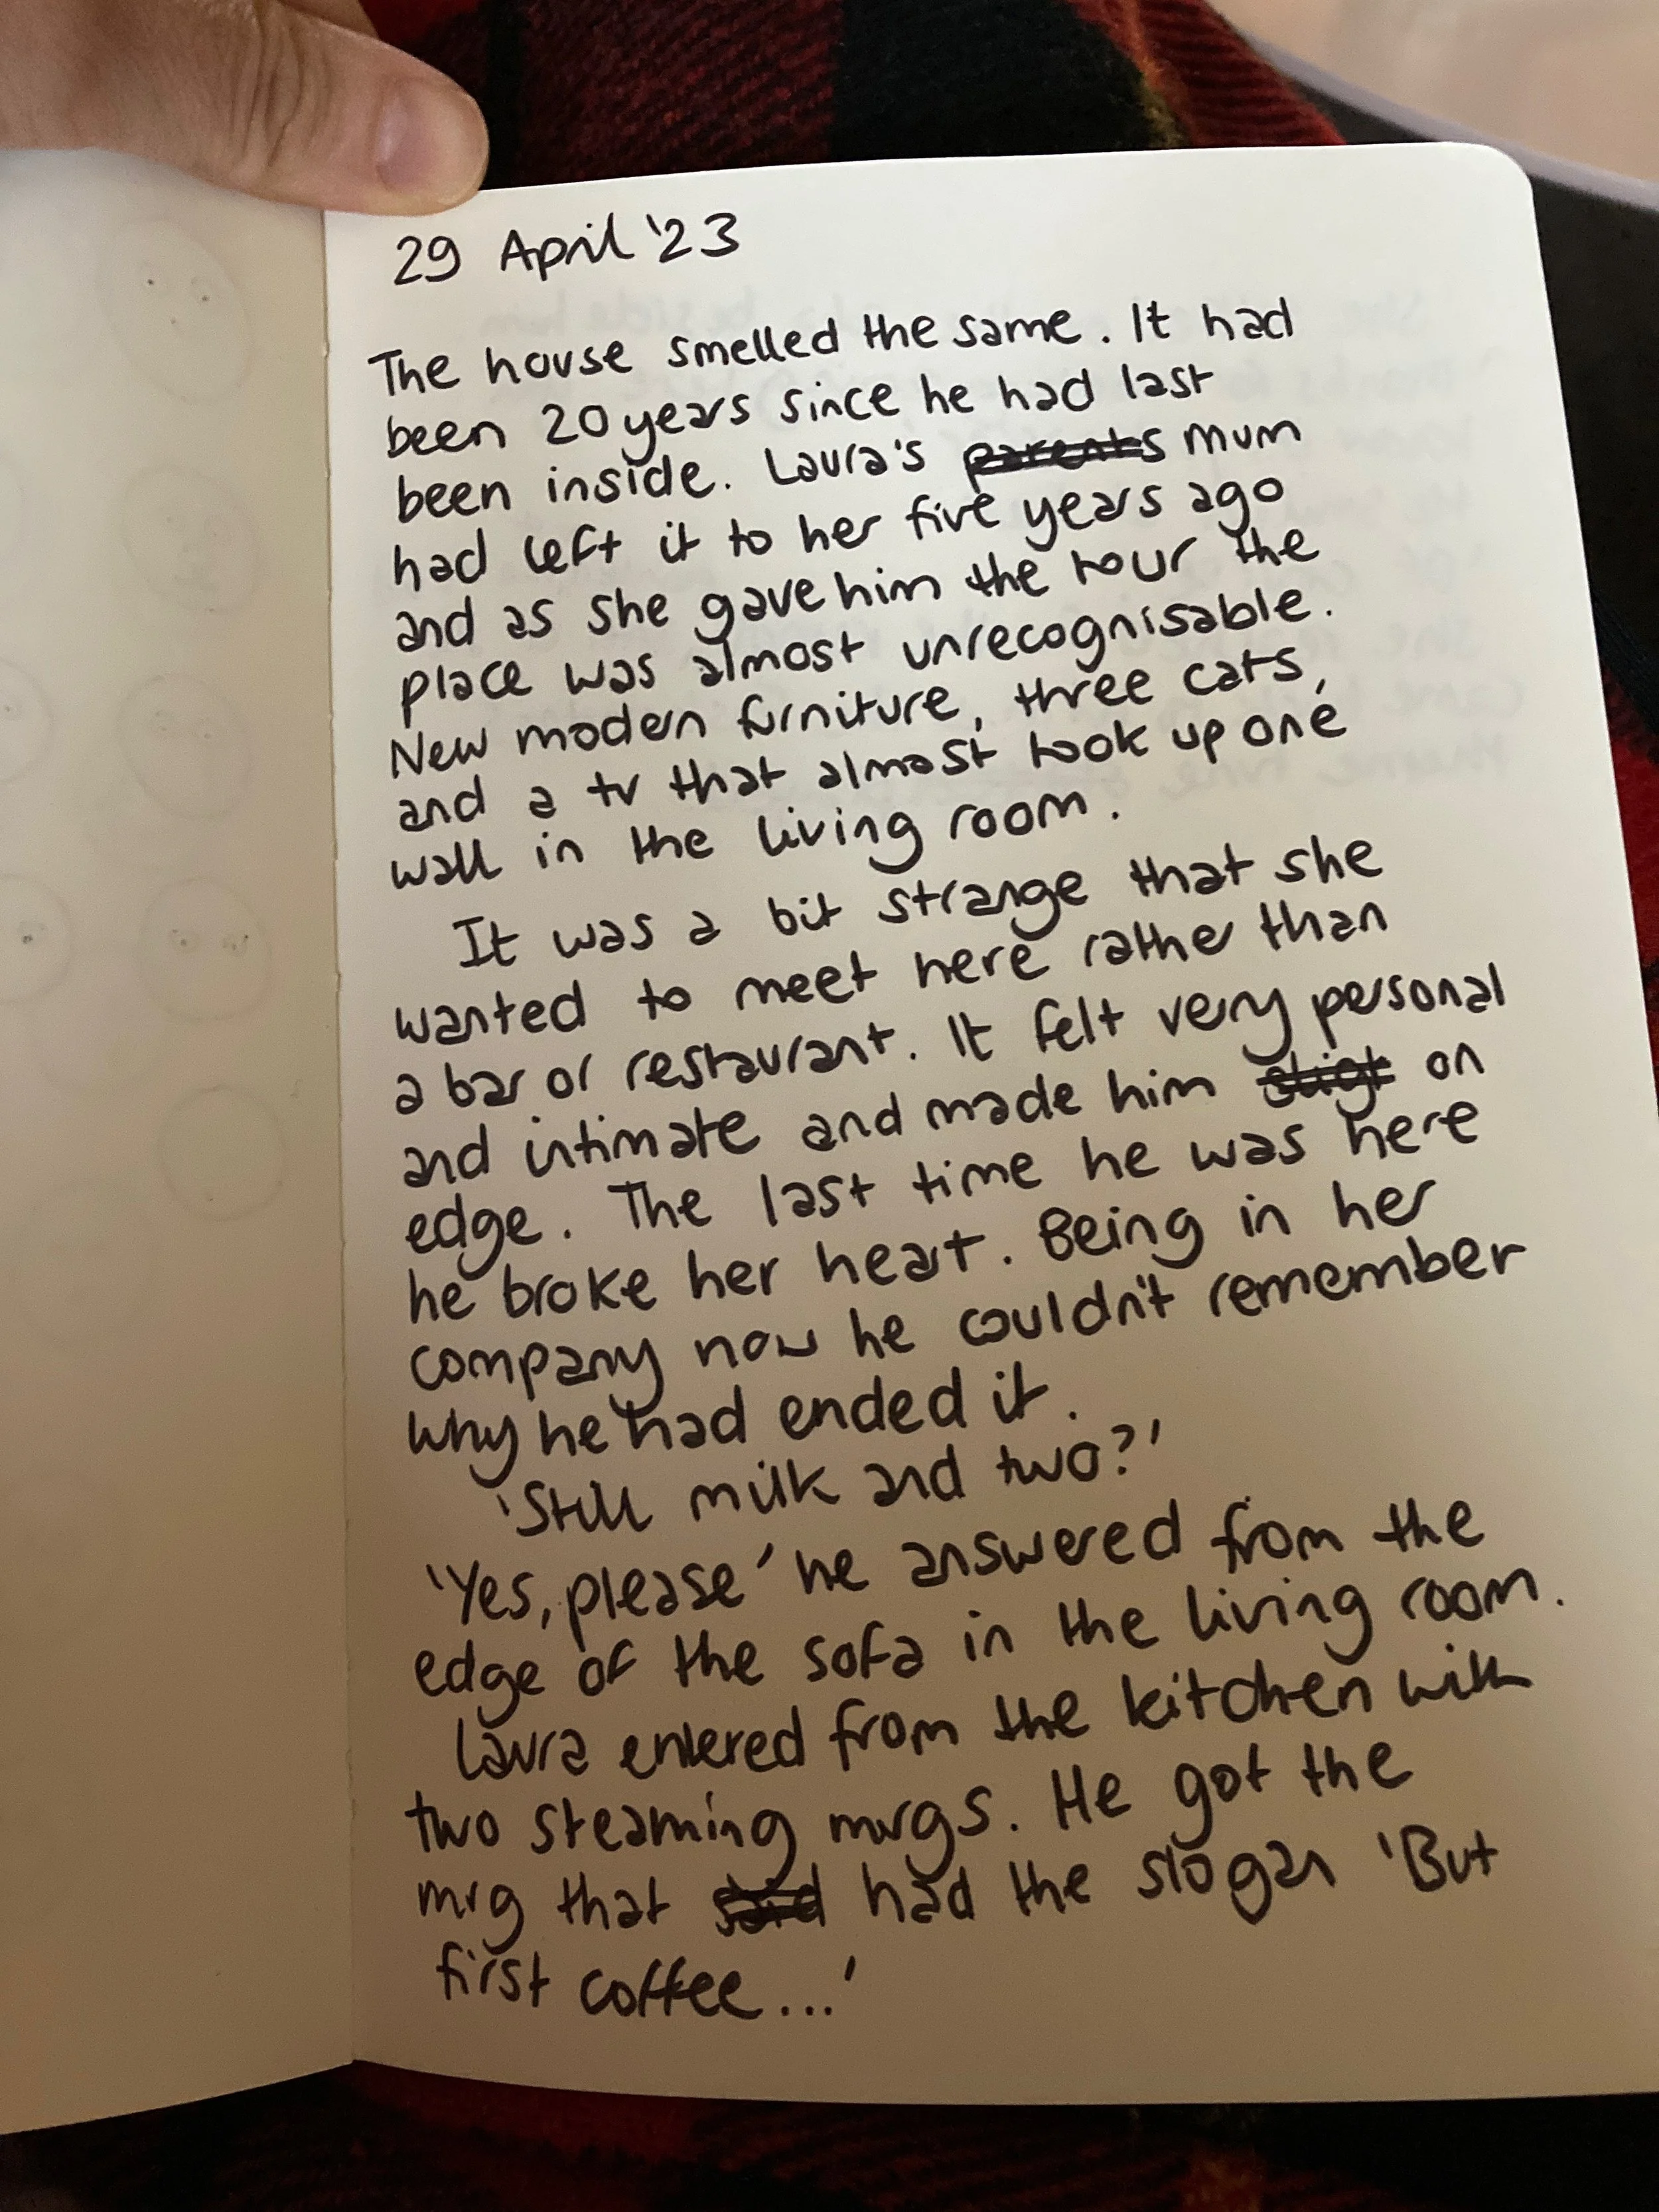 29 April '23
The house smelled the same. It had
been 20 years since he had last
been inside. Laura's parents mum
had left it to her five years ago
and as she gave him the tour the
place was almost unrecognisable.
New modern furniture, three cats,
and a tv that almost took up one
wall in the living room.
It was a bit strange that she
wanted to meet here rather than
a bar or restaurant. It felt very personal
and intimate and made him on
edge. The last time he was here
he broke her heart. Being in her
company now he couldn't remember
why he had ended it.
'Still milk and two?'
'Yes, please' he answered from the
edge of the sofa in the living room.
Laura entered from the kitchen with
two steaming mugs. He got the
mug that said had the slogan 'But
first coffee...'